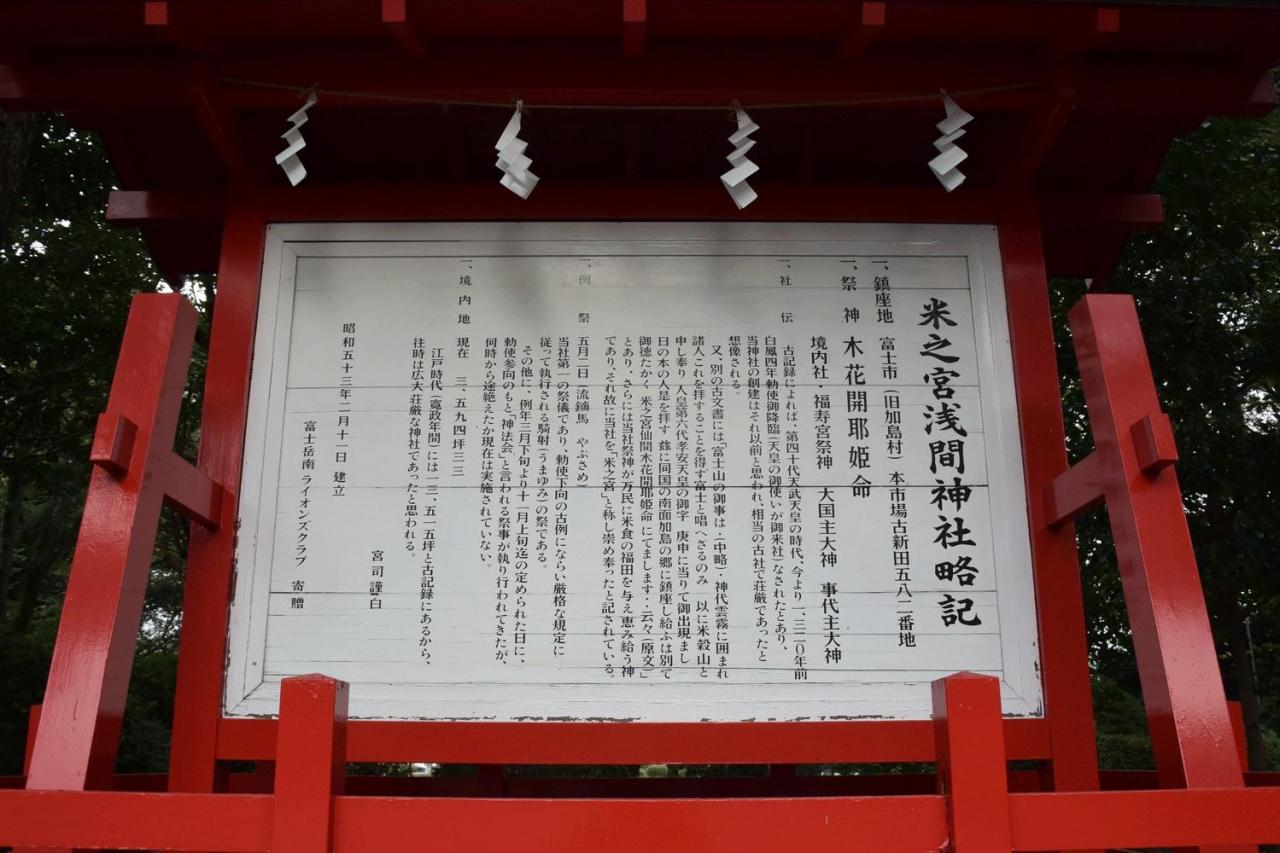 米之宮浅間神社略記
一、鎮座地　富士市（旧加島村）本市場古新田五八二番地
一、祭　神　木花開耶姫命
境内社・福寿宮祭神　大国主大神　事代主大神
一、社　伝
古記録によれば、第四十代天武天皇の時代、今より一、三二〇年前
白鳳四年勅使御降臨（天皇の御使いが御来社）なされたとあり、
当神社の創建はそれ以前と思われ、相当の古社で荘厳であったと
想像される。
又、別の古文書には「富士山の御事は・（中略）・神代雲霧に囲まれ
諸人これを拝することを得ず富士と唱へさるのみ　以に米穀山と
申し奉り　人皇第六代孝安天皇の御字　庚申に当りて御出現まし
日の本の人是を拝す　玆に同国の南面加島の郷に鎮座し給ふは別て
御徳たかく、米之宮仙間木花開耶姫命にてまします・云々（原文）」
とあり、さらには当社祭神が万民に米食の福田を与え恵み給う神
であり、それ故に当社を「米之宮」と称し崇め奉ったと記されている。
一、例　祭　五月二日（流鏑馬　やぶさめ）
当社第一の祭儀であり、勅使下向の古例にならい厳格な規定に
従って執行される騎射（うまゆみ）の祭である。
その他に、例年三月下旬より十一月上旬迄の定められた日に、
勅使参向のもと「神法会」と言われる祭事が執り行われてきたが、
何時から途絶えたか現在は実施されていない。
一、境内地　現在　三、五九四坪三三
江戸時代（寛政年間）には一三、五一五坪と古記録にあるから、
往時は広大荘厳な神社であったと思われる。
宮司謹白
昭和五十三年二月十一日　建立
富士岳南　ライオンズクラブ　寄贈